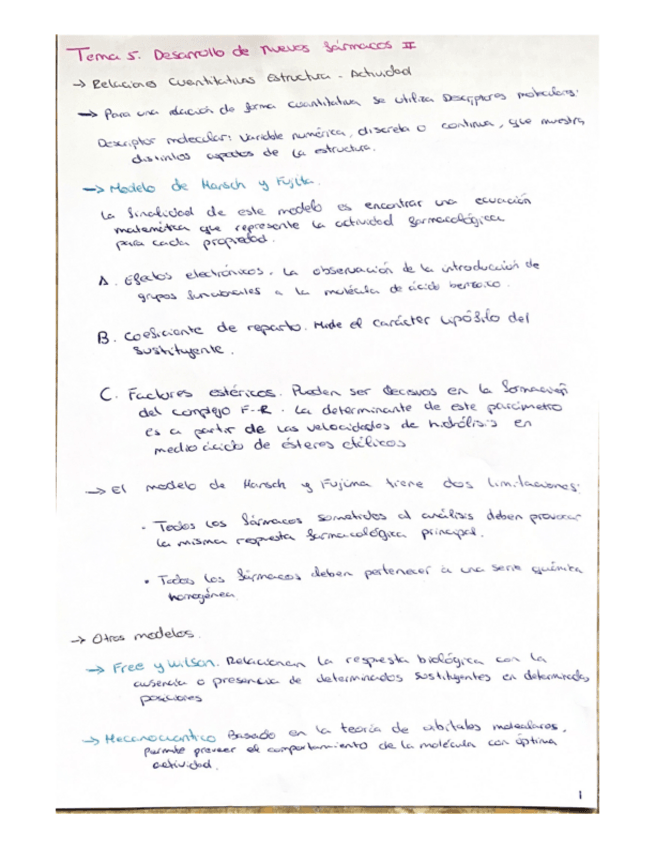 Tema 5. Desarrollo de nuevos fármacos II
→ Relaciones Cuantitativas Estructura - Actividad
→ Para una relación de forma cuantitativa se utiliza Descriptores moleculares:
Descriptor molecular: variable numérica, discreta o continua, que muestra
distintos aspectos de la estructura.
→ Modelo de Hansch y Fujita.
La finalidad de este modelo es encontrar una ecuación
matemática que represente la actividad farmacológica
para cada propiedad.
A. Efectos electrónicos. La observación de la introducción de
grupos funcionales a la molécula de ácido benzoico.
B. Coeficiente de reparto. Mide el carácter lipófilo del
sustituyente.
C. Factores estéricos. Pueden ser decisivos en la formación
del complejo F-R. La determinante de este parámetro
es a partir de las velocidades de hidrólisis en
medio ácido de ésteres etílicos
→ El modelo de Hansch y Fujima tiene dos limitaciones:
· Todos los fármacos sometidos al análisis deben provocar
la misma respuesta farmacológica principal.
• Todos los fármacos deben pertenecer a una serie química
homogénea
→ Otros modelos.
→ Free y Wilson. Relacionan la respuesta biológica con la
ausencia o presencia de determinados sustituyentes en determinadas
posiciones
→ Mecanocuántico Basado en la teoría de orbitales moleculares.
Permite preveer el comportamiento de la molécula con óptima
actividad.
1